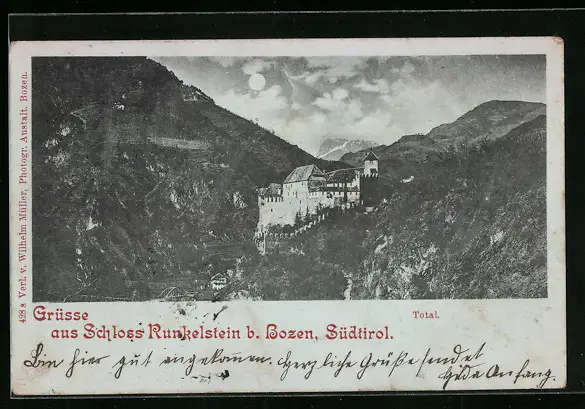 428 a Verl. v. Wilhelm Müller, Photogr. Anstalt. Bozen.
Grüsse
aus Schloss Runkelstein b. Bozen, Südtirol.
Total.
Bin hier gut angekommen. Herzliche Grüße sendet
Anfang.